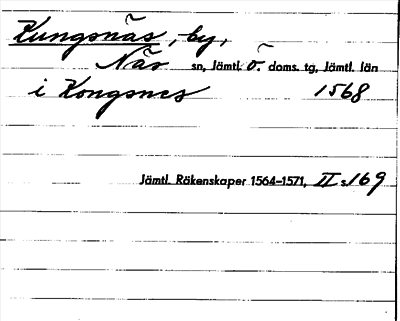 Kungsnäs, by,
Näs sn, Jämtl. ö. doms. tg, Jämtl. län
i Kongsnes 1568
Jämtl. Räkenskaper 1564–1571, II s. 169